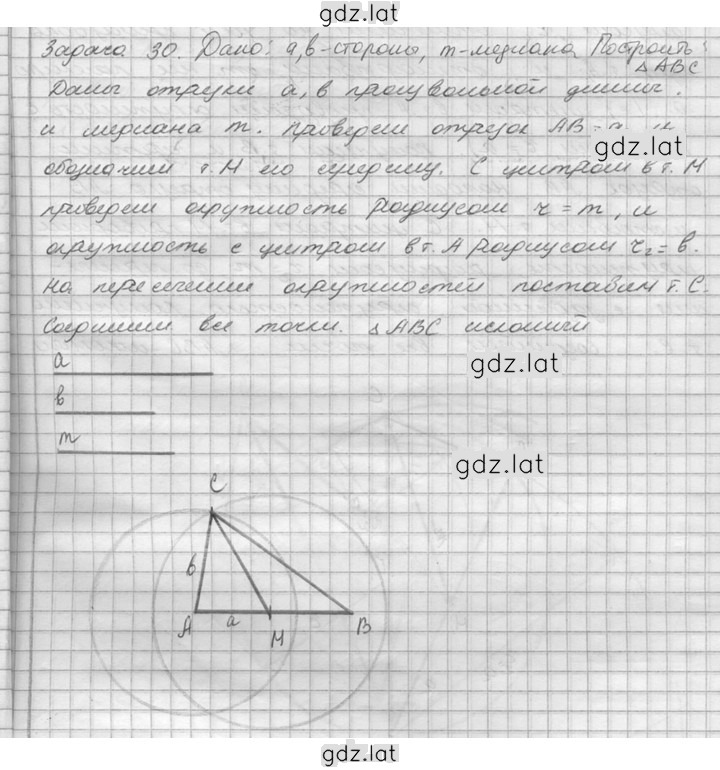 gdz.lat
Задача 30. Дано: a, b - стороны, m - медиана. Построить:
△ABC
Даны отрезки a, b произвольной длины.
и медиана m. Проведем отрезок AB =
gdz.lat
обозначим т. M его середину. С центром в т. M
проведем окружность радиусом r = m, и
окружность с центром в т. A радиусом r₂ = b.
На пересечении окружностей поставим т. C.
Соединим все точки. △ABC искомый
a
gdz.lat
b
m
gdz.lat
C
b
A
a
M
B
gdz.lat